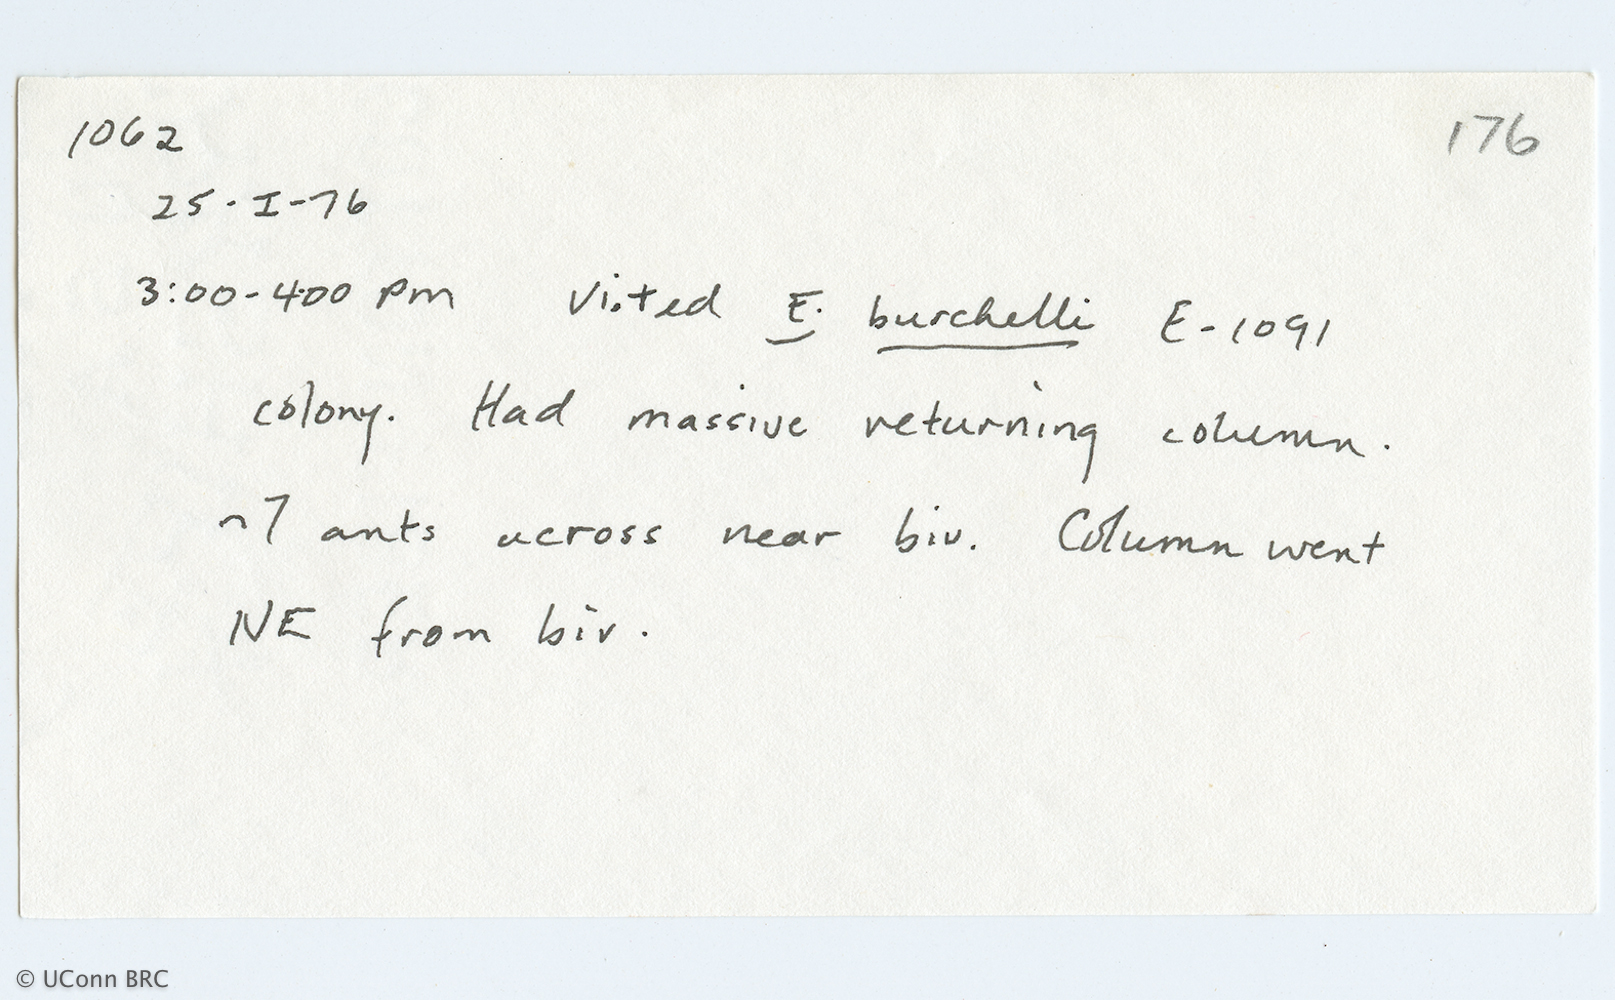 1062
176
25-I-76
3:00-4:00 pm Visted E. burchelli E-1091
colony. Had massive returning column.
~7 ants across near biv. Column went
NE from biv.
© UConn BRC